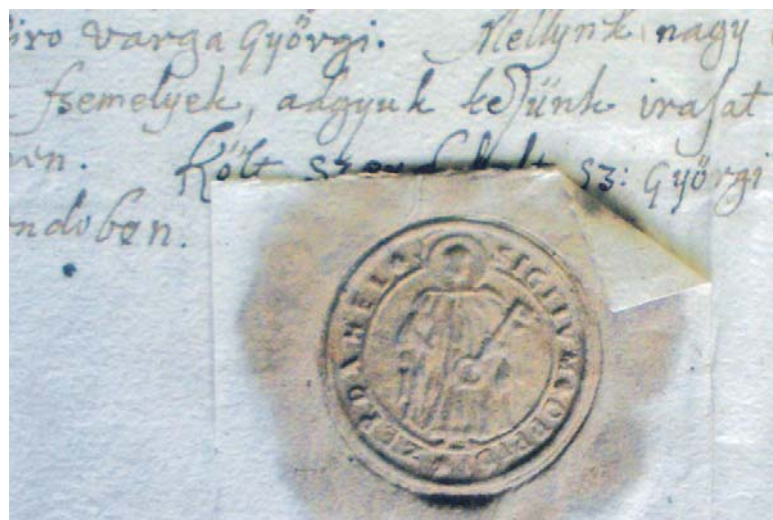 biro varga Györgi. Mellynk nagy
szemelyek, adgyuk kezünk irasat
ven. Költ sz: Györgi
endoben.
SIGILLVM OPPIDI ZERDAHELI